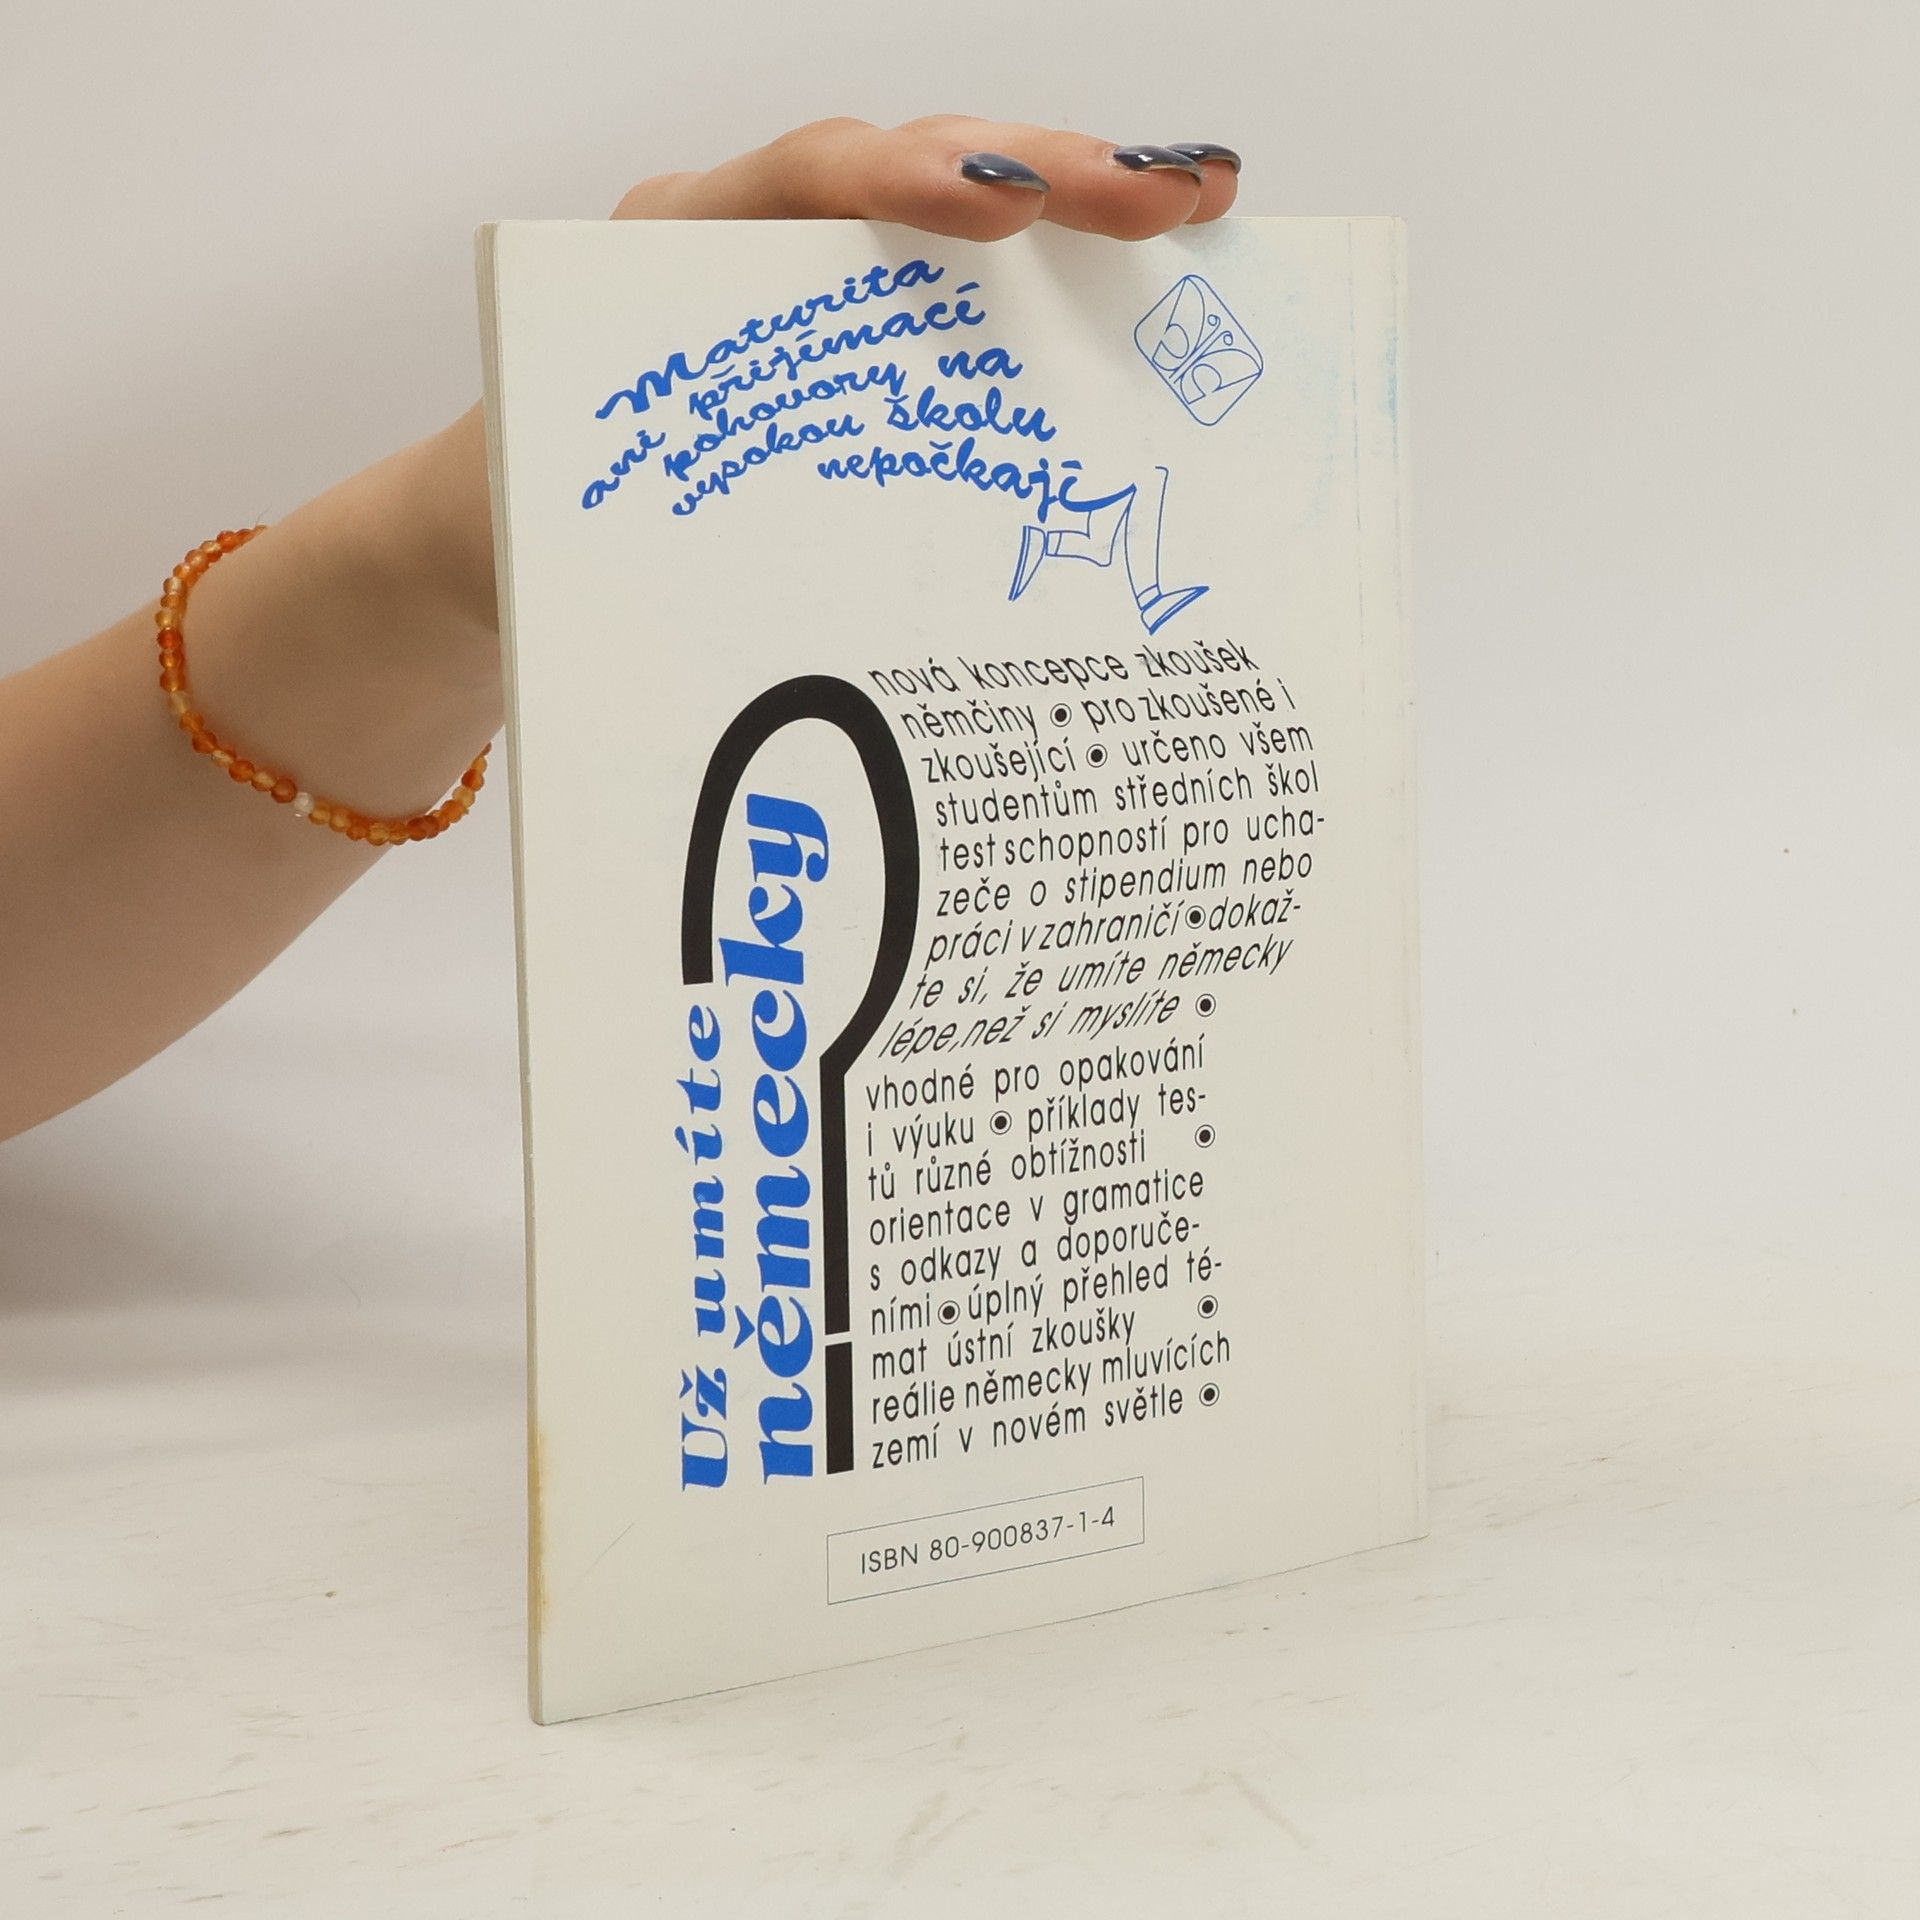 Maturita
ani přijímací
pohovory na
vysokou školu
nepočkají
Už umíte
německy
nová koncepce zkoušek
němčiny ◉ pro zkoušené i
zkoušející ◉ určeno všem
studentům středních škol
test schopností pro ucha-
zeče o stipendium nebo
práci v zahraničí ◉ dokaž-
te si, že umíte německy
lépe, než si myslíte ◉
vhodné pro opakování
i výuku ◉ příklady tes-
tů různé obtížnosti ◉
orientace v gramatice
s odkazy a doporuče-
ními ◉ úplný přehled té-
mat ústní zkoušky ◉
reálie německy mluvících
zemí v novém světle ◉
ISBN 80-900837-1-4